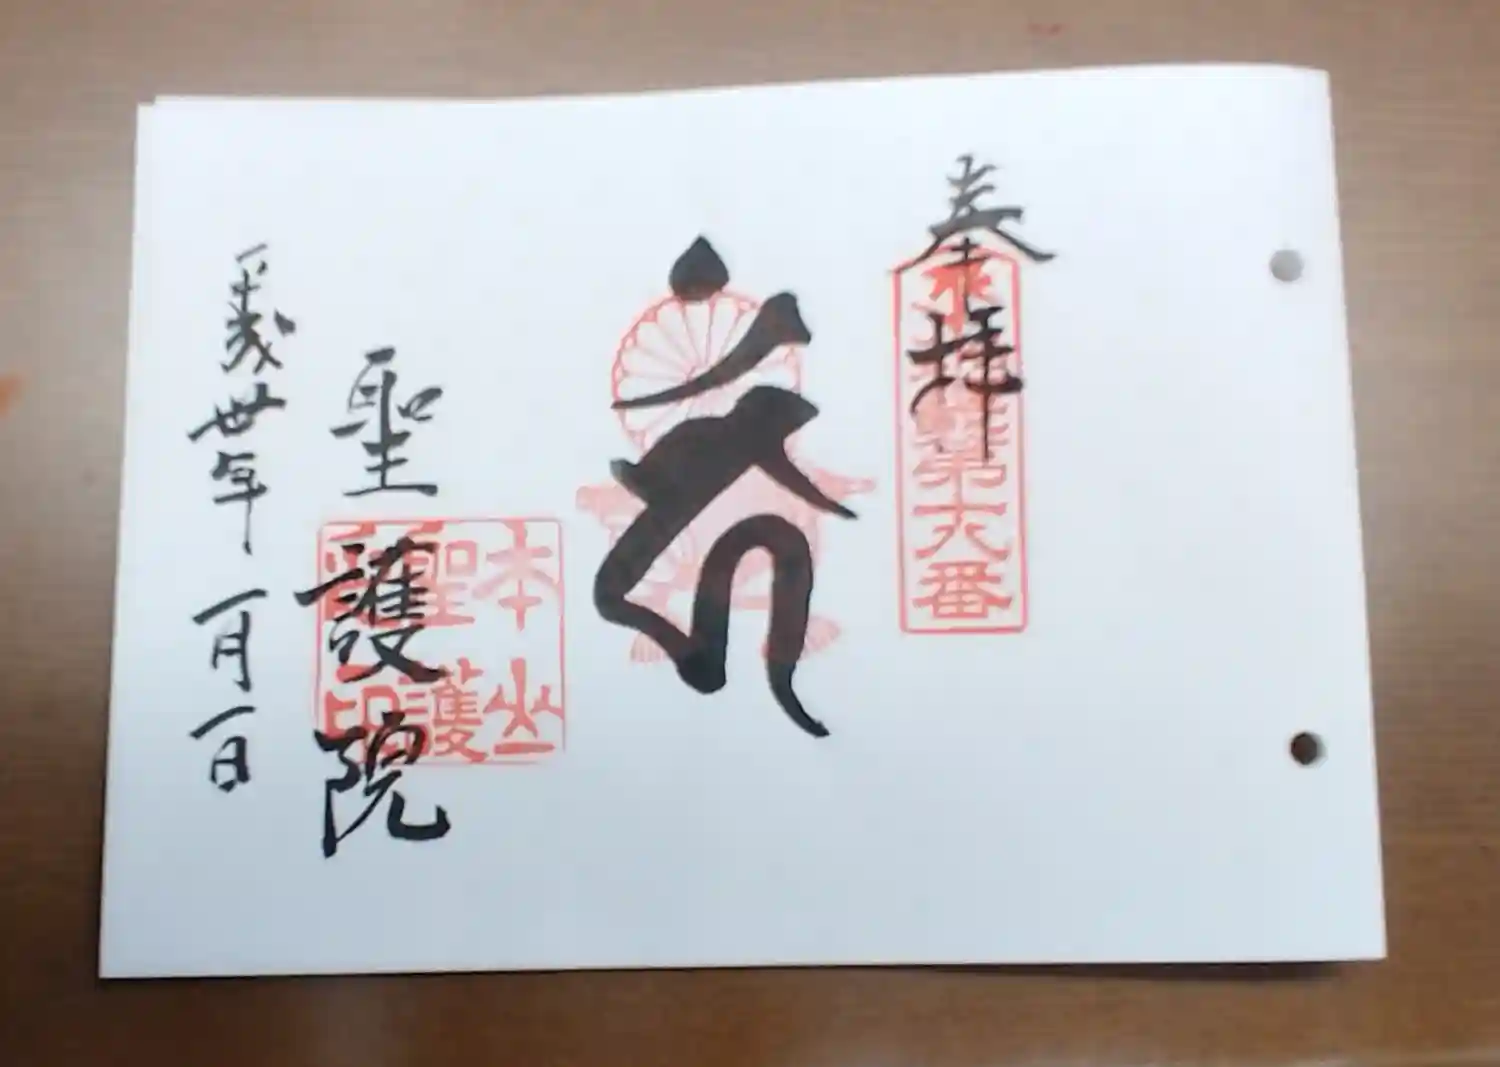 奉拝
第十八番
聖護院
本山
聖護
印
平成丗年一月一日